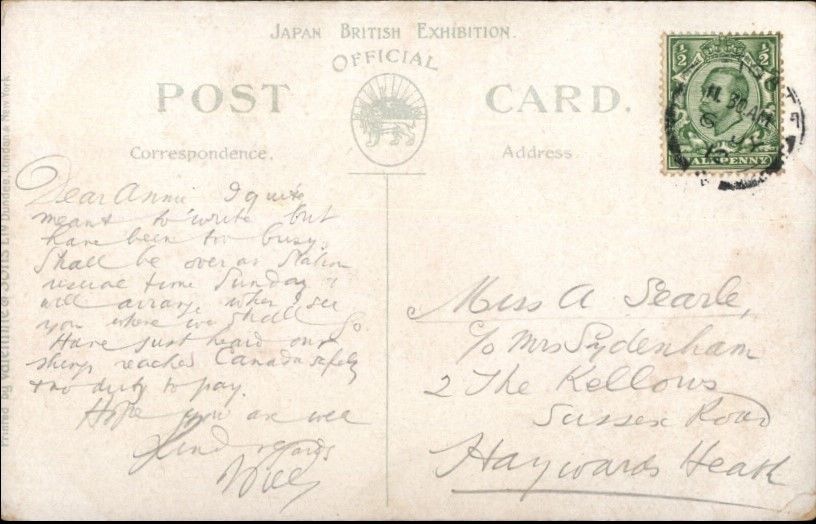 JAPAN BRITISH EXHIBITION.
OFFICIAL
POST CARD.
Correspondence.
Address.
Printed by Valentine & Sons Ltd Dundee, London & New York
1/2 1/2
HALFPENNY
11.30 AM
Dear Annie I quite
meant to write but
have been too busy.
Shall be over at Station
usual time Sunday &
will arrange when I see
you where we shall go.
Have just heard our
things reached Canada safely
& no duty to pay.
Hope you are well
Kind regards
Will
Miss A Searle,
c/o Mrs Sydenham
2 The Kellows
Sussex Road
Haywards Heath